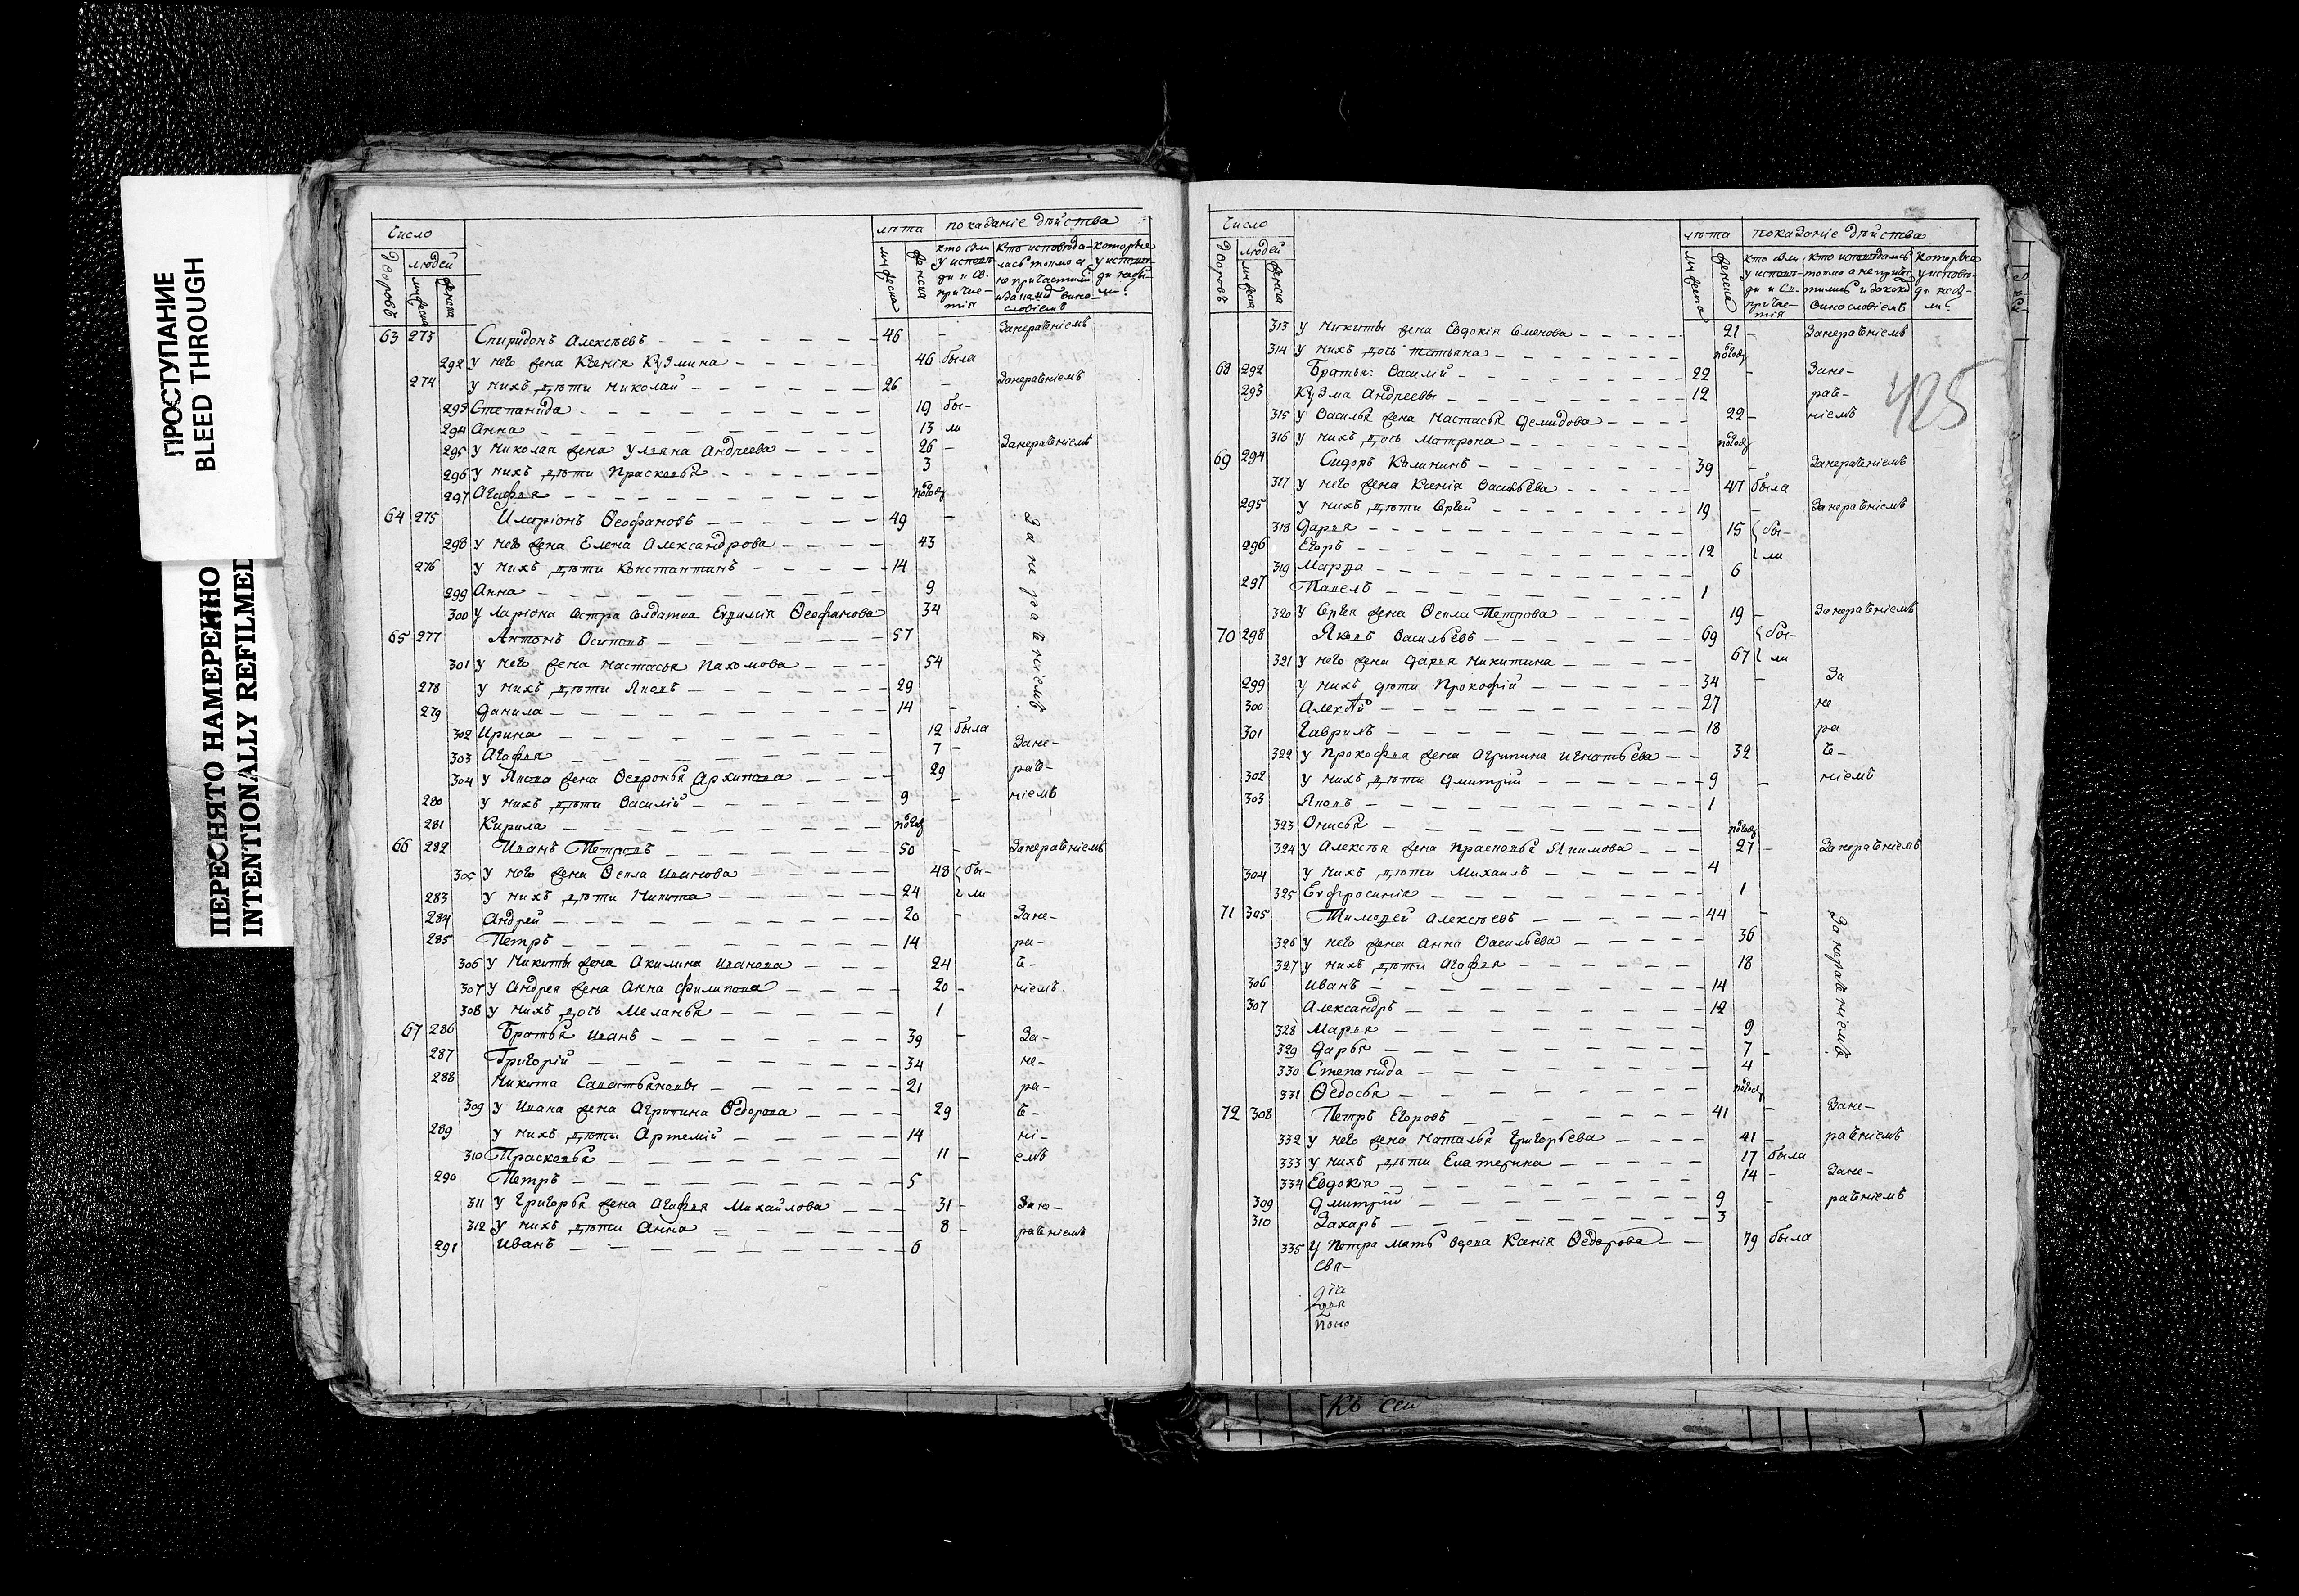 ПРОСТУПАНИЕ
BLEED THROUGH
ПЕРЕСНЯТО НАМЕРЕННО
INTENTIONALLY REFILMED
Число лѣта показаніе дѣйства
Дворовъ людей мужеска женска мужеска женска
63 273 Спиридонъ Алексѣевъ 46 - Занерадѣніемъ
292 у него жена Ксенія Кузмина 46 была
274 у нихъ дѣти Николай 26 - Занерадѣніемъ
293 Степанида 19 бы-
294 Анна 13 ли
295 у Николая жена Ульяна Андреева 26 - Занерадѣніемъ
296 у нихъ дѣти Прасковья 3
297 Агафья полгод
64 275 Иларіонъ Ѳеофановъ 49 - Занерадѣніемъ
298 у него жена Елена Александрова 43
276 у нихъ дѣти Константинъ 14
299 Анна 9
300 у Ларіона сестра солдатка Ефимія Ѳеофанова 34
65 277 Антонъ Осиповъ 57
301 у него жена Настасья Пахомова 54
278 у нихъ дѣти Яковъ 29
279 Данила 14 -
302 Ирина 12 была
303 Агафья 7 - Зане-
304 у Якова жена Ѳевронья Архипова 29 радѣ-
280 у нихъ дѣти Василій 9 - ніемъ
281 Кирила полгод
66 282 Иванъ Петровъ 50 - Занерадѣніемъ
305 у него жена Ѳекла Иванова 48 бы-
283 у нихъ дѣти Никита 24 ли
284 Андрей 20 - Зане-
285 Петръ 14 ра-
306 у Никиты жена Акилина Иванова 24 дѣ-
307 у Андрея жена Анна Филипова 20 - ніемъ
308 у нихъ дочь Меланья 1
67 286 Братья Иванъ 39 - За-
287 Григорій 34 не-
288 Никита Савастьяновы 21 ра-
309 у Ивана жена Агрипина Ѳедорова 29 дѣ-
289 у нихъ дѣти Артемій 14 ні-
310 Прасковья 11 - емъ
290 Петръ 5
311 у Григорья жена Агафья Михайлова 31 - Зане-
312 у нихъ дѣти Анна 8 - радѣніемъ
291 Иванъ 6
Число лѣта показаніе дѣйства
Дворовъ людей мужеска женска мужеска женска
313 у Никиты жена Евдокія Семенова 21 - Занерадѣніемъ
314 у нихъ дочь Татьяна полгод
68 292 Братья: Василій 22 - Зане-
293 Кузма Андреевы 12 радѣ-
315 у Василья жена Настасья Демидова 22 - ніемъ
425
316 у нихъ дочь Матрона полгод
69 294 Сидоръ Калининъ 39 - Занерадѣніемъ
317 у него жена Ксенія Васильева 47 была
295 у нихъ дѣти Сергей 19 - Занерадѣніемъ
318 Дарья 15 бы-
296 Егоръ 12 ли
319 Марѳа 6
297 Павелъ 1
320 у Сергея жена Ѳекла Петрова 19 - Занерадѣніемъ
70 298 Яковъ Васильевъ 69 бы-
321 у него жена Дарья Никитина 67 ли
299 у нихъ дѣти Прокофій 34 - За
300 Алексѣй 27 не
301 Гаврилъ 18 ра
322 у Прокофья жена Агрипина Игнатьева 32 дѣ-
302 у нихъ дѣти Дмитрій 9 - ніемъ
303 Яковъ 1
323 Онисья полгод
324 у Алексѣя жена Прасковья Якимова 27 - Занерадѣніемъ
304 у нихъ дѣти Михаилъ 4
325 Евфросинія 1
71 305 Тимоѳей Алексѣевъ 44 - Занерадѣніемъ
326 у него жена Анна Васильева 36
327 у нихъ дѣти Агафья 18
306 Иванъ 14
307 Александръ 12
328 Марья 9
329 Дарья 7 -
330 Степанида 4
331 Ѳедосья полгод
72 308 Петръ Егоровъ 41 - Зане-
332 у него жена Наталья Григорьева 41 - радѣніемъ
333 у нихъ дѣти Екатерина 17 была
334 Евдокія 14 - Зане-
309 Дмитрій 9 - радѣніемъ
310 Захаръ 3
335 у Петра мать вдова Ксенія Ѳедорова 79 была
свя-
діа
поно
Къ сеи